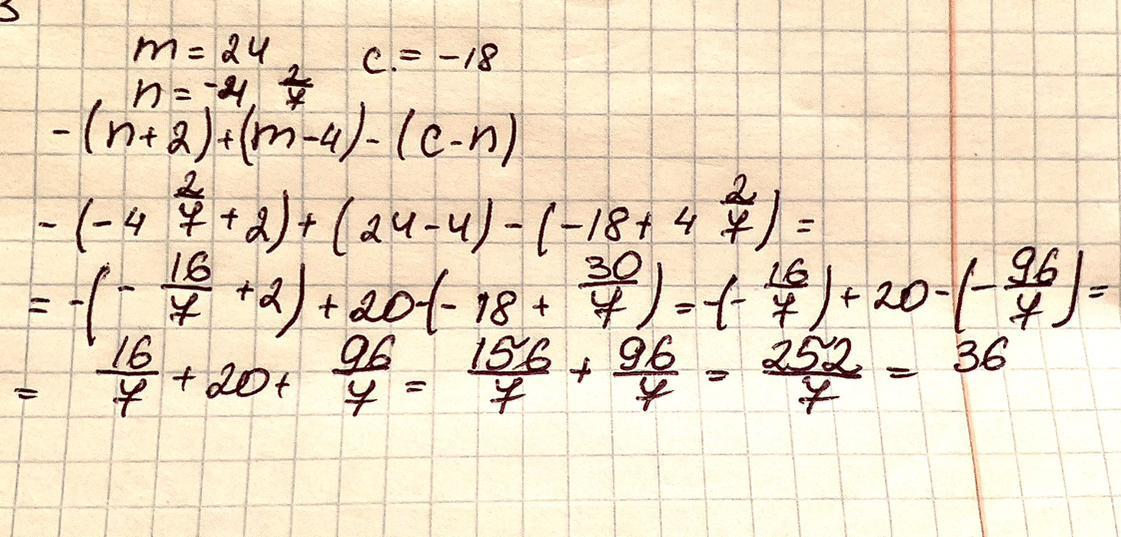 m = 24 c. = -18
n = -4 2/7
- (n + 2) + (m - 4) - (c - n)
- (-4 2/7 + 2) + (24 - 4) - (-18 + 4 2/7) =
= -(- 16/7 + 2) + 20 -(- 18 + 30/7) = -(- 16/7) + 20 - (- 96/7) =
= 16/7 + 20 + 96/7 = 156/7 + 96/7 = 252/7 = 36